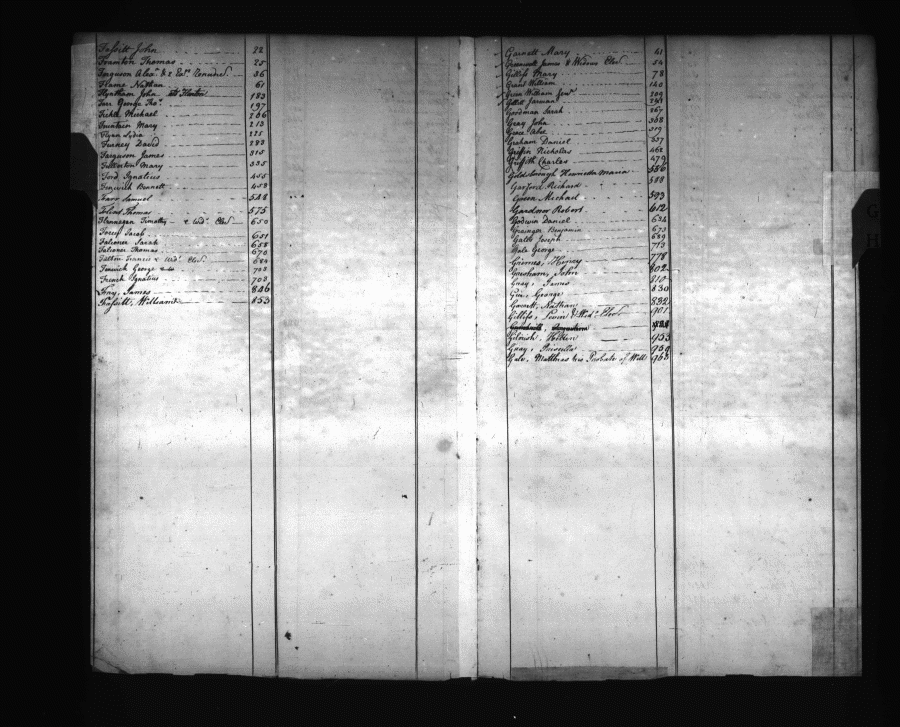 Fassitt John 22
Framton Thomas 25
Ferguson Alexr. 36
Flame Nathan 61
Flyntham John 183
Farr George Thos. 197
Fickle Michael 206
Fountain Mary 213
Flynn Lydia 221
Furney David 283
Farguson James 315
Fullerton Mary 335
Ford Ignatius 455
Fenwick Bennett 458
Farr Samuel 548
Thomas 575
Flannegan Timothy & Wd. 650
Jacob 651
Falconer Sarah 658
Falconer Thomas 670
Francis & Wd. 684
Fenwick George 702
French Ignatius 703
Fray, James 846
Fassitt, William 853
Garnett Mary 61
Greenwell James & Widows 54
Gilliss Mary 78
Grant William 140
Green William Junr.
Gillett Jarman 241
Goodman Sarah 267
Gray John 308
Grace Abel 319
Graham Daniel 337
Griffin Nicholas 462
Griffith Charles 479
Goldsborough Henrietta Maria 586
Garford Richard 588
Green Michael 593
Gardner Robert 612
Godwin Daniel 634
Grainger Benjamin 673
Galth Joseph 689
Gale George 713
Grimes, Henry 778
Gresham, John 802
Gray, James 810
Gee, George 830
Garrett, Nathan 832
Gilliss, Levin & Wid. 901
Gray, Priscilla 959
Gale, Matthias his Probate of Will 963
G
H